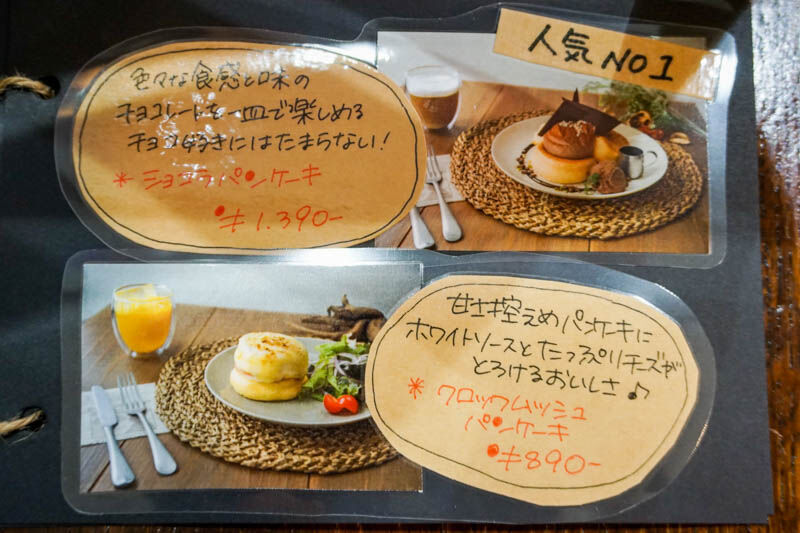 人気 NO1
色々な食感と味の
チョコレートを一皿で楽しめる
チョコ好きにはたまらない!
* ショコラパンケーキ
・¥1.390-
甘さ控えめパンケーキに
ホワイトソースとたっぷりチーズが
とろけるおいしさ♪
* クロックムッシュ
パンケーキ
・¥890-